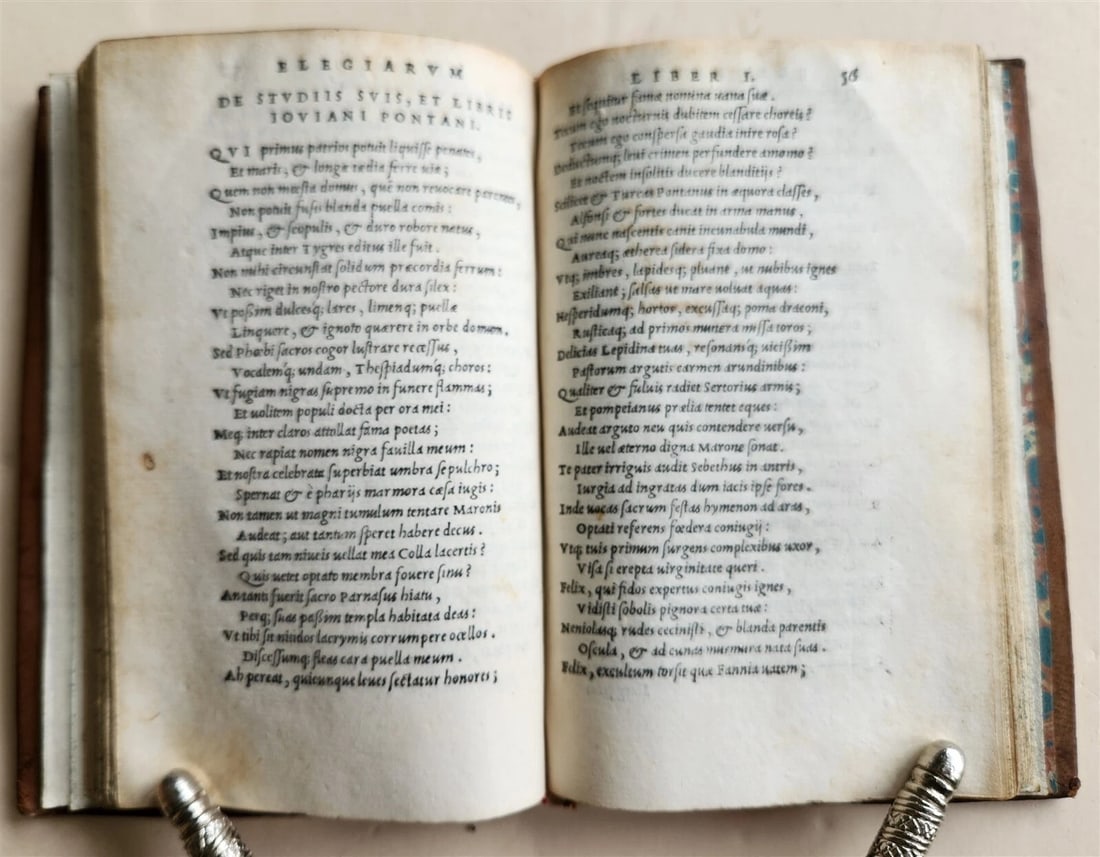 ELEGIARVM
DE STVDIIS SVIS, ET LIBRIS
IOVIANI PONTANI.
QVI primus patrios potuit liquisse penates,
Et maris, & longæ tædia ferre uiæ;
Quem non mœsta domus, quē non reuocare parentes,
Non potuit fusis blanda puella comis:
Impius, & scopulis, & duro robore natus,
Atque inter Tygres editus ille fuit.
Non mihi circunstat solidum præcordia ferrum:
Nec riget in nostro pectore dura silex:
Vt possim dulcesq; lares, limenq; puellæ
Linquere, & ignoto quærere in orbe domum.
Sed Phœbi sacros cogor lustrare recessus,
Vocalemq; undam, Thespiadumq; choros:
Vt fugiam nigras supremo in funere flammas;
Et uolitem populi docta per ora mei:
Meq; inter claros attollat fama poetas;
Nec rapiat nomen nigra fauilla meum:
Et nostra celebrata superbiat umbra sepulchro;
Spernat & è pharijs marmora cæsa iugis:
Non tamen ut magni tumulum tentare Maronis
Audeat; aut tantum speret habere decus.
Sed quis tam niueis uellat mea Colla lacertis?
Quis uetet optato membra fouere sinu?
An tanti fuerit sacro Parnasus hiatu,
Perq; suas passim templa habitata deas:
Vt tibi sit nitidos lacrymis corrumpere ocellos.
Discessumq; fleas cara puella meum.
Ah pereat, quicunque leues sectatur honores;
LIBER I. 36
Et sequitur famæ nomina uana suæ.
Tecum ego nocturnis dubitem cessare choreis?
Tecum ego conspersæ gaudia inire rosa?
Dedectumq; leui crimen perfundere amomo?
Et noctem insolitis ducere blanditijs?
Scilicet & Turcas Pontanus in æquora classes,
Alfonsi & fortes ducat in arma manus,
Qui nunc nascentis canit incunabula mundi,
Aureaq; ætherea sidera fixa domo:
Vtq; imbres, lapidesq; pluant, ut nubibus ignes
Exiliant; salsas ut mare uoluat aquas:
Hesperidumq; hortos, excussaq; poma draconi,
Rusticaq; ad primos munera missa toros;
Delicias Lepidina tuas, resonansq; uicissim
Pastorum argutis carmen arundinibus:
Qualiter & fuluis radiet Sertorius armis;
Et pompeianus prælia tentet eques:
Audeat arguto neu quis contendere uersu,
Ille uel æterno digna Marone sonat.
Te pater irriguis audit Sebethus in antris,
Iurgia ad ingratas dum iacis ipse fores.
Inde uocas sacrum festas hymenon ad aras,
Optati referens fœdera coniugij:
Vtq; tuis primum surgens complexibus uxor,
Visa si erepta uirginitate queri.
Felix, qui fidos expertus coniugis ignes,
Vidisti sobolis pignora certa tuæ:
Neniolasq; rudes cecinisti, & blanda parentis
Oscula, & ad cunas murmura nata suas.
Felix, excultum torsit quæ Fannia uatem;